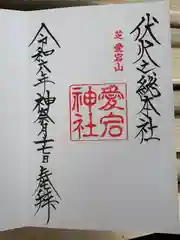 伏火之総本社
芝愛宕山
愛宕神社
令和六年神無月十七日奉拝